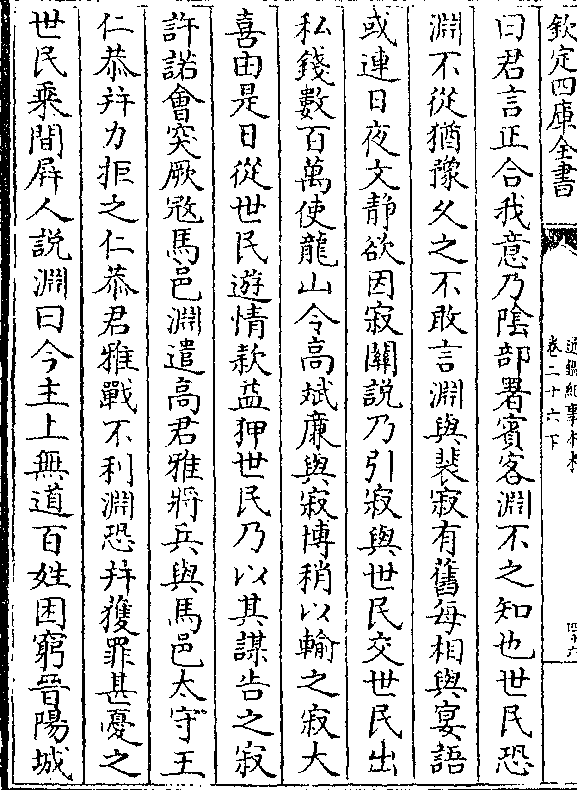 欽定四庫全書
通鑑紀事本末
卷二十六下
四十六
曰君言正合我意乃陰部署賓客淵不之知也世民恐
淵不從猶豫久之不敢言淵與裴寂有舊每相與宴語
或連日夜文靜欲因寂關說乃引寂與世民交世民出
私錢數百萬使龍山令高斌廉與寂博稍以輸之寂大
喜由是日從世民遊情款益狎世民乃以其謀告之寂
許諾會突厥寇馬邑淵遣高君雅將兵與馬邑太守王
仁恭并力拒之仁恭君雅戰不利淵恐并獲罪甚憂之
世民乘間屏人說淵曰今主上無道百姓困窮晉陽城